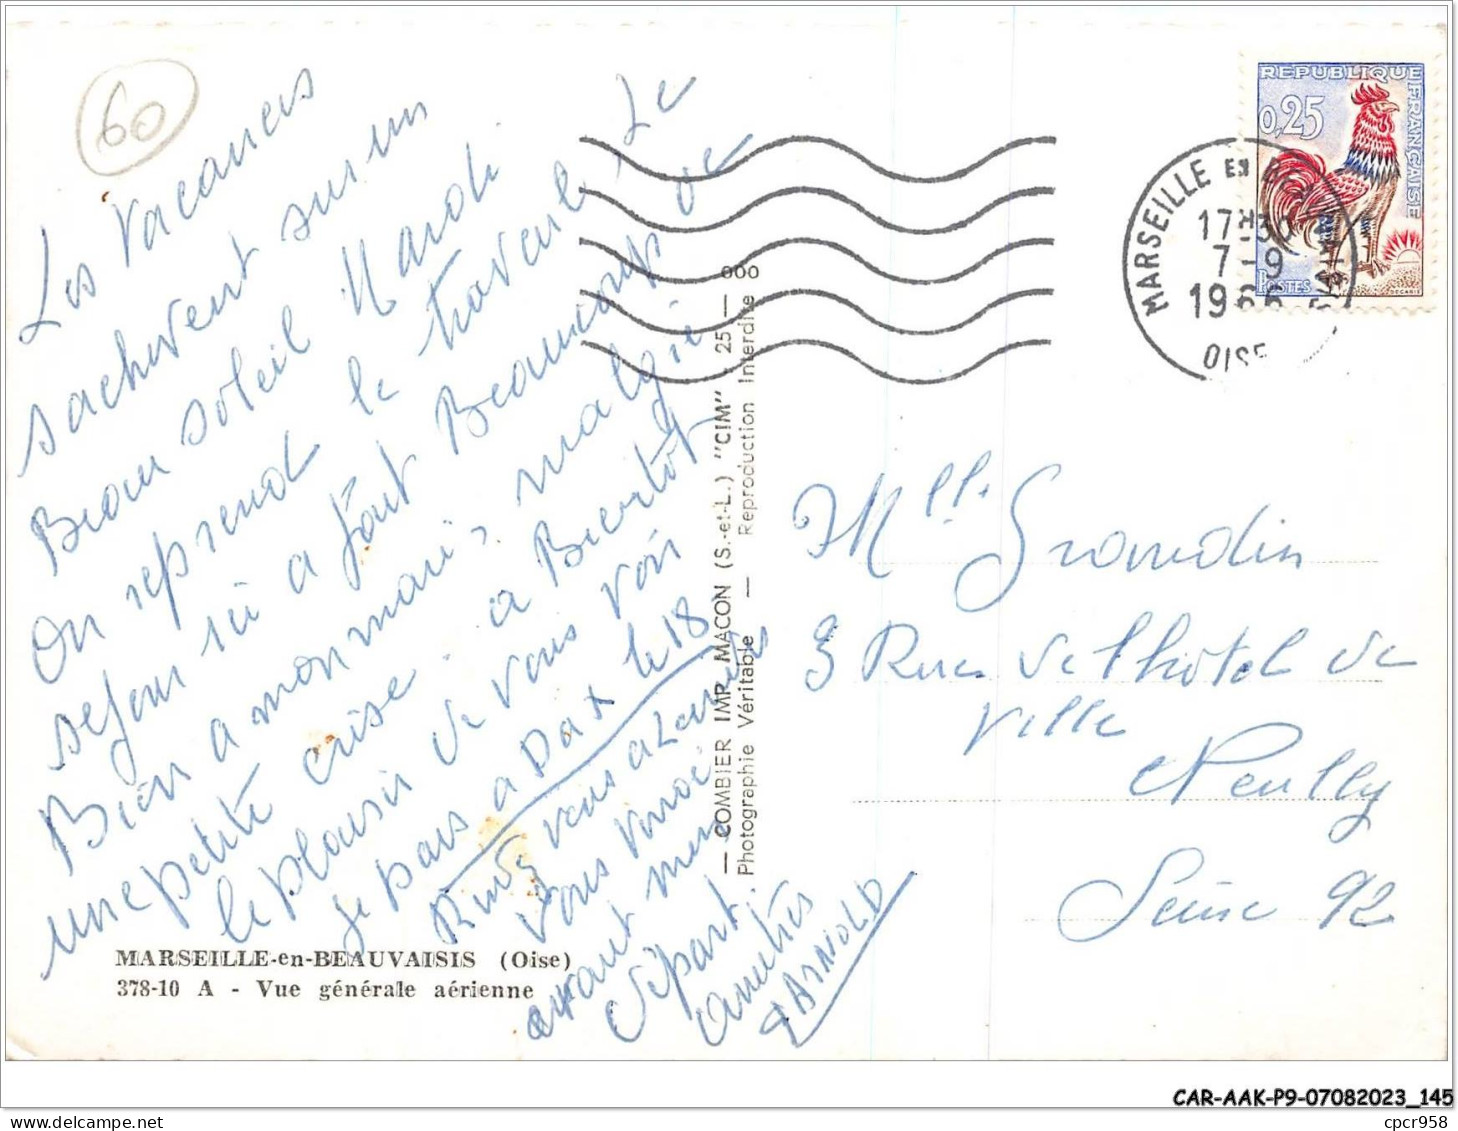 60
Les Vacances
s'achèvent sur un
Beau soleil Mardi
On reprend le travail, Le
séjour ici a fait Beaucoup de
Bien a mon mari, malgré
une petite crise. a Bientôt
le plaisir de vous voir
je pars a Dax le 18
Rendez vous a
vous
avant mon
Départ.
Amitiés
ARNOLD
MARSEILLE-en-BEAUVAISIS (Oise)
378-10 A - Vue générale aérienne
— COMBIER IMP. MACON (S.-et-L.) "CIM" 25 — 000
Photographie Véritable — Reproduction Interdite
REPUBLIQUE FRANÇAISE
0,25
POSTES
DECARIS
MARSEILLE EN
17H30
7-9
1966
OISE
Mlle Grandin
3 Rue de l'hôtel de
Ville
Neuilly
Seine 92
CAR-AAK-P9-07082023_145
cpcr958